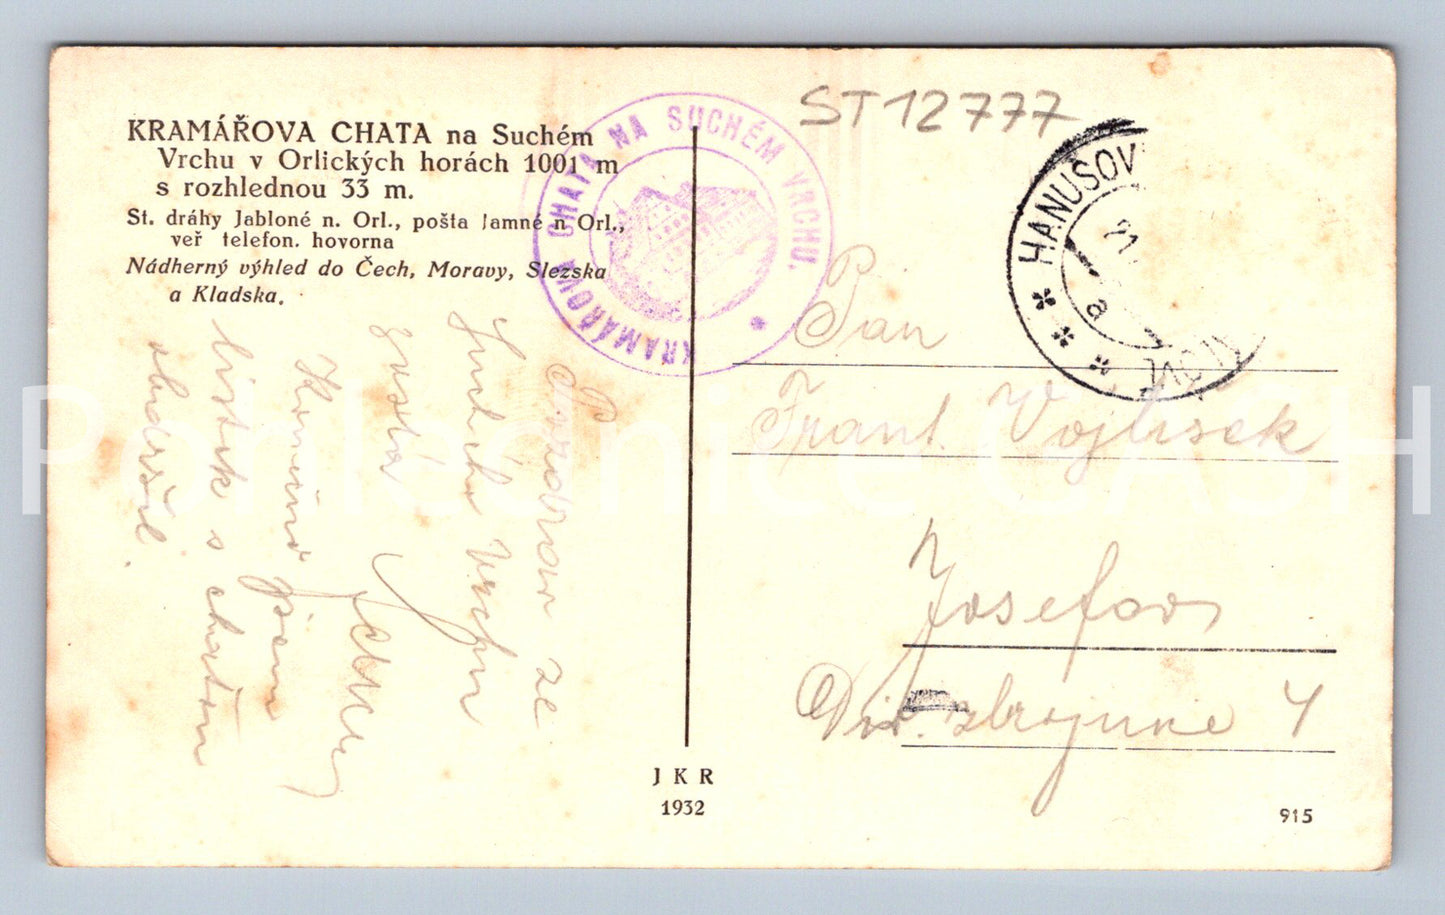 KRAMÁŘOVA CHATA na Suchém
Vrchu v Orlických horách 1001 m
s rozhlednou 33 m.
St. dráhy Jabloné n. Orl., pošta Jamné n Orl.,
veř telefon. hovorna
Nádherný výhled do Čech, Moravy, Slezska
a Kladska.
KRAMÁŘOVA CHATA NA SUCHÉM VRCHU.
ST12777
HANUŠOV
21.
a
Pozdrav ze
Suchého Vrchu
jen
lístek s
obdržíš.
Pan
Frant. Vojtíšek
Josefov
Div. zbrojnice 4
J K R
1932
915
Pohlednice CASH